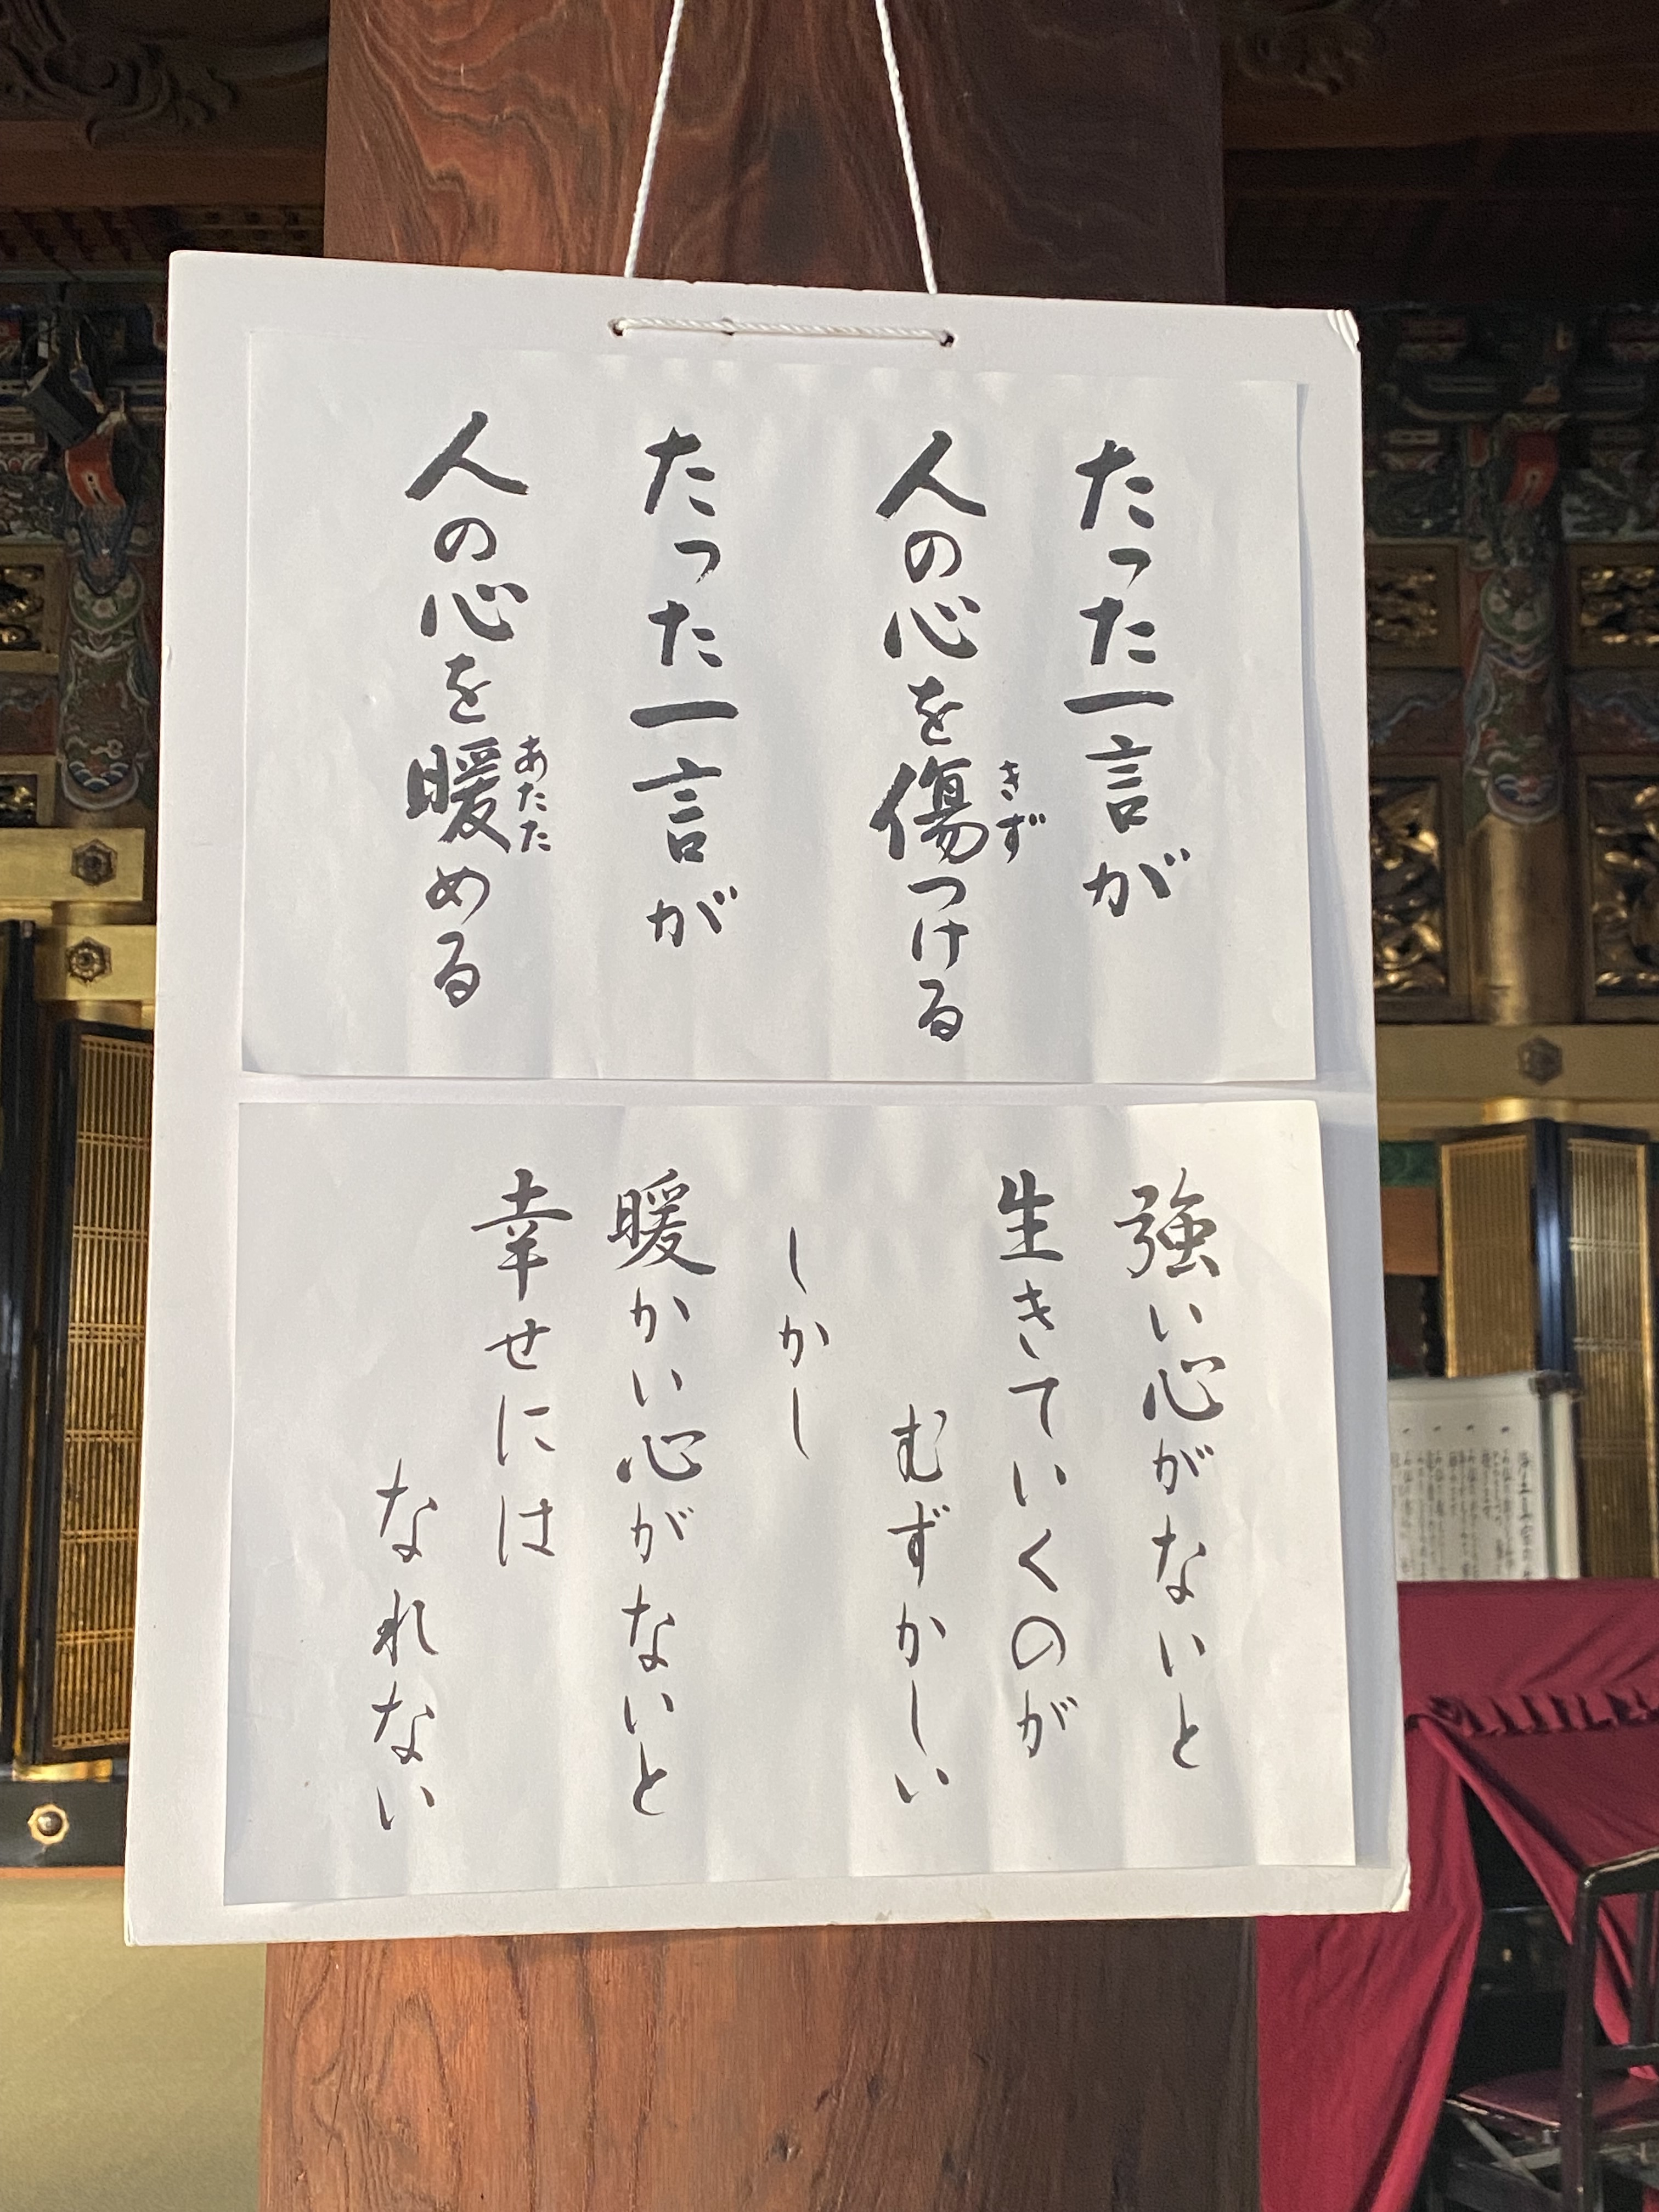 たった一言が
人の心を傷つける
きず
たった一言が
人の心を暖める
あたた
強い心がないと
生きていくのが
むずかしい
しかし
暖かい心がないと
幸せには
なれない